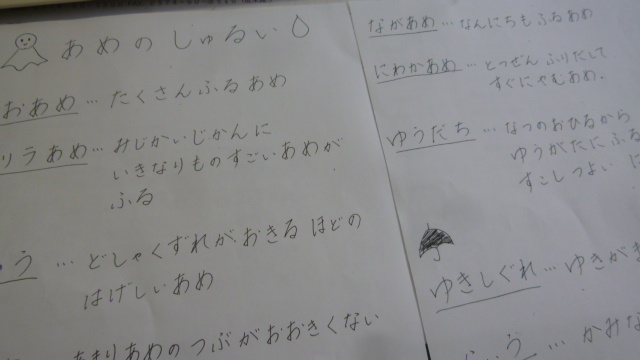 あめのじゅるい
おあめ…たくさんふるあめ
リラあめ…みじかいじかんに
いきなりものすごいあめが
ふる
う…どしゃくずれがおきるほどの
はげしいあめ
あまりあめのつぶがおおきくない
ながあめ…なんにちもふるあめ
にわかあめ…とつぜんふりだして
すぐにやむあめ.
ゆうだち…なつのおひるから
ゆうがたにふる
すこしつよい
ゆきしぐれ…ゆきが
う…かみな